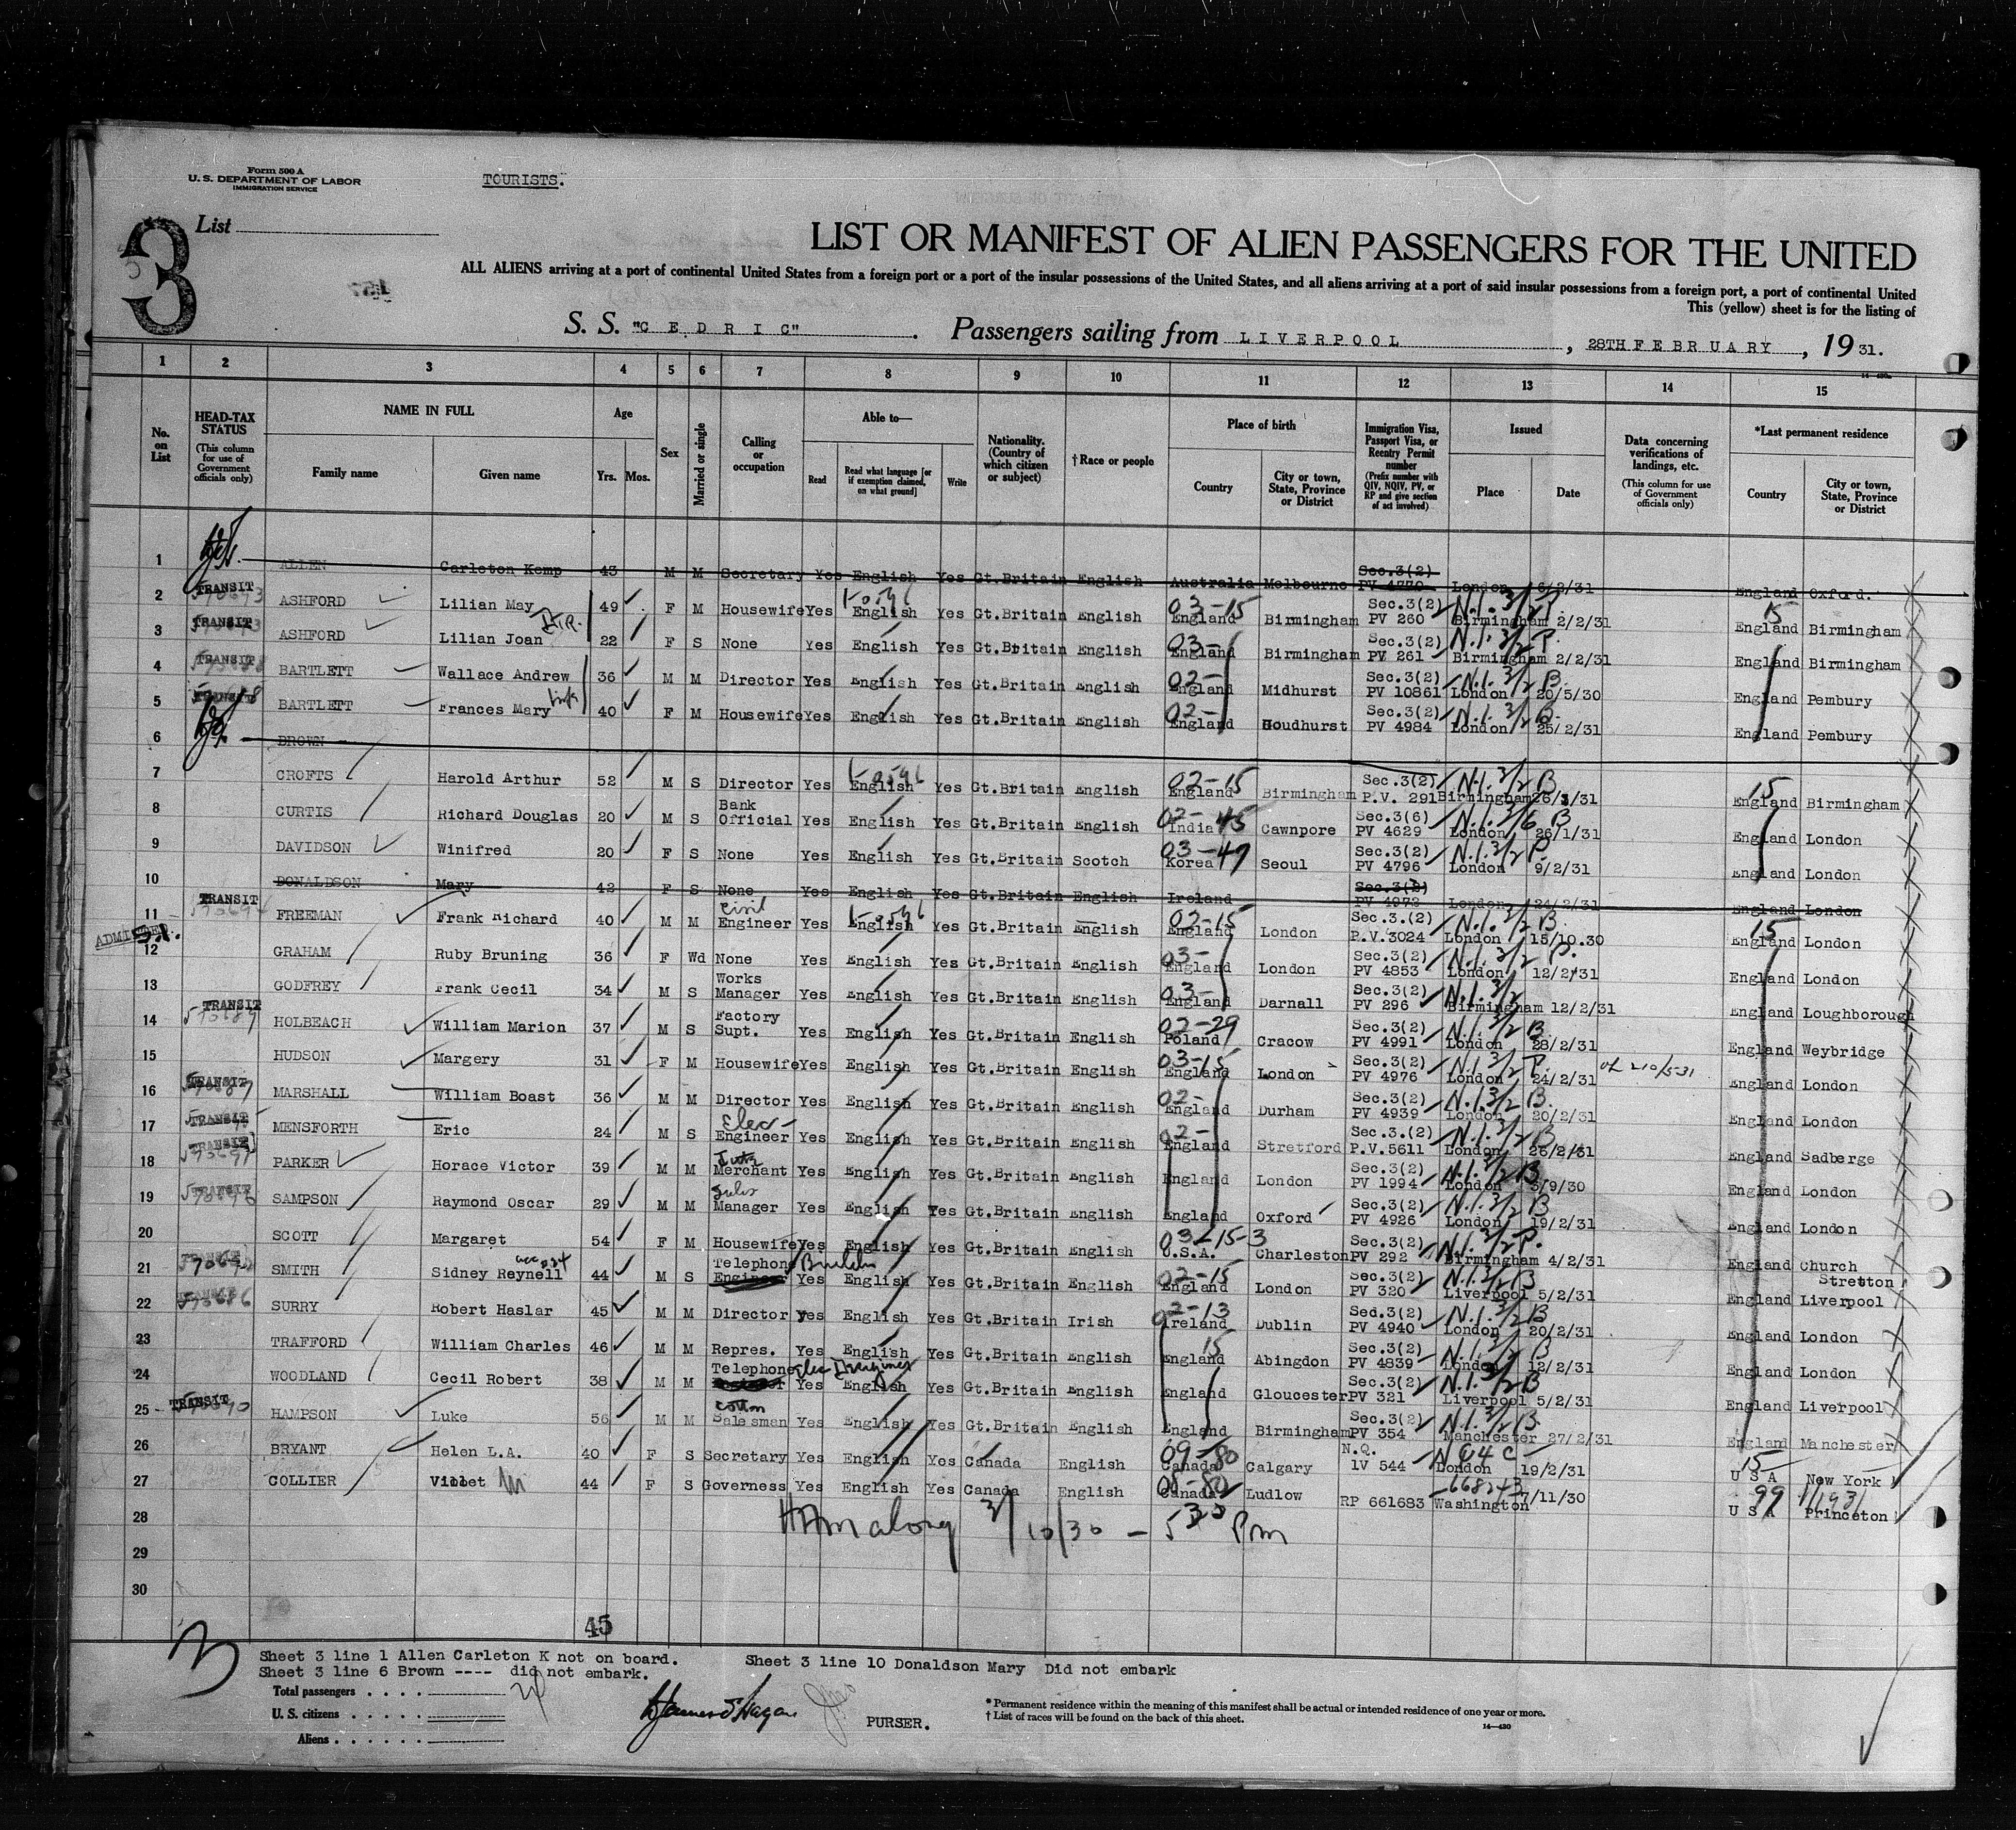 Form 500 A
U. S. DEPARTMENT OF LABOR
IMMIGRATION SERVICE
TOURISTS.
3
List
LIST OR MANIFEST OF ALIEN PASSENGERS FOR THE UNITED
ALL ALIENS arriving at a port of continental United States from a foreign port or a port of the insular possessions of the United States, and all aliens arriving at a port of said insular possessions from a foreign port, a port of continental United
This (yellow) sheet is for the listing of
S. S. "C E D R I C" . Passengers sailing from L I V E R P O O L , 28TH F E B R U A R Y , 19 31.
1 2 3 4 5 6 7 8 9 10 11 12 13 14 15
No. on List
HEAD-TAX STATUS (This column for use of Government officials only)
NAME IN FULL
Family name Given name
Age Yrs. Mos.
Sex
Married or single
Calling or occupation
Able to—
Read Read what language [or if exemption claimed, on what ground] Write
Nationality. (Country of which citizen or subject)
†Race or people
Place of birth
Country City or town, State, Province or District
Immigration Visa, Passport Visa, or Reentry Permit number (Prefix number with QIV, NQIV, PV, or RP and give section of act involved)
Issued
Place Date
Data concerning verifications of landings, etc. (This column for use of Government officials only)
*Last permanent residence
Country City or town, State, Province or District
1 ALLEN Carleton Kemp 43 M M Secretary Yes English Yes Gt.Britain English Australia Melbourne Sec.3(2) PV 4770 London 6/2/31 England Oxford.
2 TRANSIT ASHFORD Lilian May 49 F M Housewife Yes English Yes Gt.Britain English 03-15 England Birmingham Sec.3(2) PV 260 N.I. 3/2 P. Birmingham 2/2/31 15 England Birmingham
3 TRANSIT ASHFORD Lilian Joan 22 F S None Yes English Yes Gt.Britain English 03- England Birmingham Sec.3(2) PV 261 N.I. 3/2 P. Birmingham 2/2/31 England Birmingham
4 TRANSIT BARTLETT Wallace Andrew 36 M M Director Yes English Yes Gt.Britain English 02- England Midhurst Sec.3(2) PV 10861 N.I. 3/2 B. London 20/5/30 England Pembury
5 TRANSIT BARTLETT Frances Mary 40 F M Housewife Yes English Yes Gt.Britain English 02- England Goudhurst Sec.3(2) PV 4984 N.I. 3/2 B. London 25/2/31 England Pembury
6 BROWN -
7 CROFTS Harold Arthur 52 M S Director Yes English Yes Gt.Britain English 02-15 England Birmingham Sec.3(2) P.V. 291 N.I. 3/2 B Birmingham 15 England Birmingham
8 CURTIS Richard Douglas 20 M S Bank Official Yes English Yes Gt.Britain English 02-45 India Cawnpore Sec.3(6) PV 4629 N.I. 3/6 B London 26/1/31 England London
9 DAVIDSON Winifred 20 F S None Yes English Yes Gt.Britain Scotch 03-47 Korea Seoul Sec.3(2) PV 4796 N.I. 3/2 P. London 9/2/31 England London
10 DONALDSON Mary 42 F S None Yes English Yes Gt.Britain English Ireland Sec.3(2) PV 4973 London 24/2/31 England London
11 TRANSIT FREEMAN Frank Richard 40 M M Civil Engineer Yes English Yes Gt.Britain English 02-15 England London Sec.3.(2) P.V.3024 N.I. 3/2 B. London 15/10.30 15 England London
ADMITTED S.I.
12 GRAHAM Ruby Bruning 36 F Wd None Yes English Yes Gt.Britain English 03- England London Sec.3(2) PV 4853 N.I. 3/2 P. London 12/2/31 England London
13 GODFREY Frank Cecil 34 M S Works Manager Yes English Yes Gt.Britain English 03- England Darnall Sec.3(2) PV 296 N.I. 3/2 Birmingham 12/2/31 England Loughborough
14 TRANSIT HOLBEACH William Marion 37 M S Factory Supt. Yes English Yes Gt.Britain English 02-29 Poland Cracow Sec.3(2) PV 4991 N.I. 3/2 B London 28/2/31 England Weybridge
15 HUDSON Margery 31 F M Housewife Yes English Yes Gt.Britain English 03-15 England London Sec.3(2) PV 4976 N.I. 3/2 P. London 24/2/31 England London
16 TRANSIT MARSHALL William Boast 36 M M Director Yes English Yes Gt.Britain English 02- England Durham Sec.3(2) PV 4939 N.I. 3/2 B. London 20/2/31 England London
17 TRANSIT MENSFORTH Eric 24 M S Elec- Engineer Yes English Yes Gt.Britain English 02- England Stretford Sec.3.(2) P.V.5611 N.I. 3/2 B London England Sadberge
18 TRANSIT PARKER Horace Victor 39 M M Merchant Yes English Yes Gt.Britain English England London Sec.3(2) PV 1994 N.I. 3/2 B London 3/9/30 England London
19 TRANSIT SAMPSON Raymond Oscar 29 M M Sales Manager Yes English Yes Gt.Britain English England Oxford Sec.3(2) PV 4926 N.I. 3/2 B London 19/2/31 England London
20 SCOTT Margaret 54 F M Housewife Yes English Yes Gt.Britain English 03-15-3 U.S.A. Charleston Sec.3(2) PV 292 N.I. 3/2 P. Birmingham 4/2/31 England Church Stretton
21 TRANSIT SMITH Sidney Reynell 44 M S Telephone Engineer Yes English Yes Gt.Britain English 02-15 England London Sec.3(2) PV 320 N.I. 3/2 B Liverpool 5/2/31 England Liverpool
22 TRANSIT SURRY Robert Haslar 45 M M Director Yes English Yes Gt.Britain Irish 02-13 Ireland Dublin Sed.3(2) PV 4940 N.I. 3/2 B London 20/2/31 England London
23 TRAFFORD William Charles 46 M M Repres. Yes English Yes Gt.Britain English 15 England Abingdon Sec.3(2) PV 4839 N.I. 3/2 B London 12/2/31 England London
24 WOODLAND Cecil Robert 38 M M Telephone Yes English Yes Gt.Britain English England Gloucester Sec.3(2) PV 321 N.I. 3/2 B Liverpool 5/2/31 England Liverpool
25 TRANSIT HAMPSON Luke 56 M M Cotton Salesman Yes English Yes Gt.Britain English England Birmingham Sec.3(2) PV 354 N.I. 3/2 B Manchester 27/2/31 England Manchester
26 BRYANT Helen L.A. 40 F S Secretary Yes English Yes Canada English 09-80 Canada Calgary N.Q. IV 544 N 64 C London 19/2/31 15 U S A New York
27 COLLIER Violet 44 F S Governess Yes English Yes Canada English Canada Ludlow RP 661683 Washington 7/11/30 99 U S A Princeton
28
29
30
45
3
Sheet 3 line 1 Allen Carleton K not on board. Sheet 3 line 10 Donaldson Mary Did not embark
Sheet 3 line 6 Brown ---- did not embark.
Total passengers
U. S. citizens
Aliens
PURSER.
* Permanent residence within the meaning of this manifest shall be actual or intended residence of one year or more.
† List of races will be found on the back of this sheet.
14—430